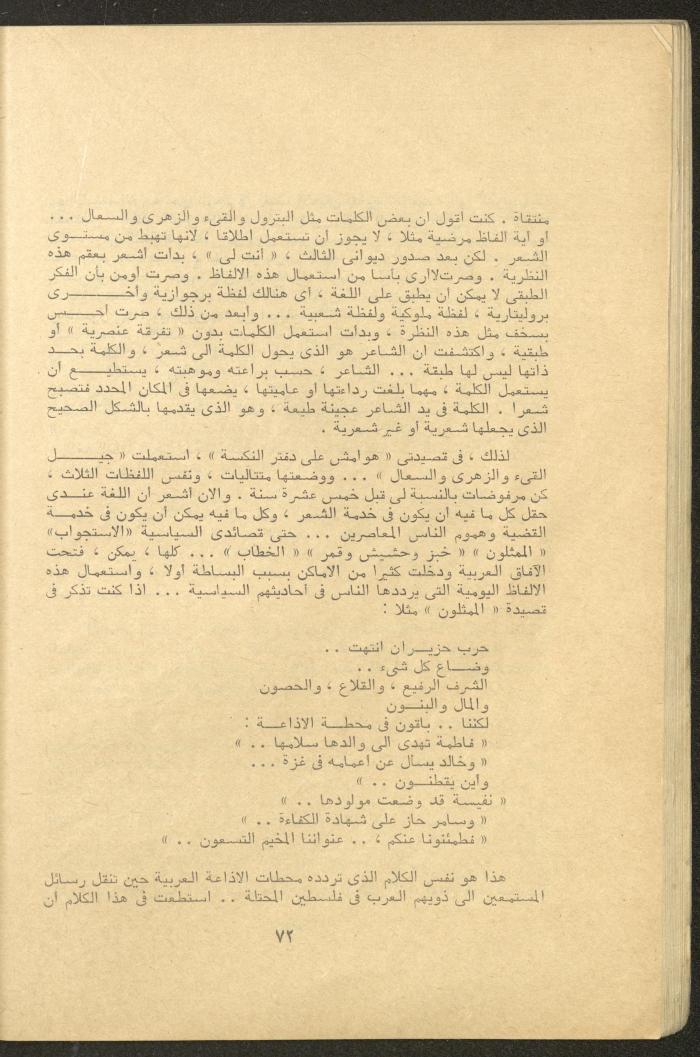 منتقاة . كنت اقول ان بعض الكلمات مثل البترول والقىء والزهرى والسعال ...
او أية الفاظ مرضية مثلا ، لا يجوز ان تستعمل اطلاقا ، لانها تهبط من مستوى
الشعر . لكن بعد صدور ديوانى الثالث ، « أنت لى » ، بدأت أشعر بعقم هذه
النظرية . وصرت لاارى بأسا من استعمال هذه الالفاظ . وصرت اومن بأن الفكر
الطبقى لا يمكن ان يطبق على اللغة ، أى هنالك لفظة برجوازية وأخرى
بروليتارية ، لفظة ملوكية ولفظة شعبية ... وأبعد من ذلك ، صرت أحس
بسخف مثل هذه النظرة ، وبدأت استعمل الكلمات بدون « تفرقة عنصرية » أو
طبقية ، واكتشفت ان الشاعر هو الذى يحول الكلمة الى شعر ، والكلمة بحد
ذاتها ليس لها طبقة ... الشاعر ، حسب براعته وموهبته ، يستطيع ان
يستعمل الكلمة ، مهما بلغت رداءتها أو عاميتها ، يضعها فى المكان المحدد فتصبح
شعرا . الكلمة فى يد الشاعر عجينة طيعة ، وهو الذى يقدمها بالشكل الصحيح
الذى يجعلها شعرية أو غير شعرية .
لذلك ، فى قصيدتى « هوامش على دفتر النكسة » ، استعملت « جيل
القىء والزهرى والسعال » ... ووضعتها متتاليات ، ونفس اللفظات الثلاث ،
كن مرفوضات بالنسبة لى قبل خمس عشرة سنة . والان أشعر ان اللغة عندى
حقل كل ما فيه ان يكون فى خدمة الشعر ، وكل ما فيه يمكن أن يكون فى خدمة
القضية وهموم الناس المعاصرين ... حتى قصائدى السياسية «الاستجواب»
« الممثلون » « خبز وحشيش وقمر » « الخطاب » ... كلها ، يمكن ، فتحت
الآفاق العربية ودخلت كثيرا من الاماكن بسبب البساطة أولا ، واستعمال هذه
الالفاظ اليومية التى يرددها الناس فى أحاديثهم السياسية ... اذا كنت تذكر فى
قصيدة « الممثلون » مثلا :
حرب حزيران انتهت ..
وضاع كل شىء ..
الشرف الرفيع ، والقلاع ، والحصون
والمال والبنون
لكننا .. باقون فى محطة الاذاعة :
« فاطمة تهدى الى والدها سلامها .. »
« وخالد يسأل عن اعمامه فى غزة ...
وأين يقطنون .. »
« نفيسة قد وضعت مولودها .. »
« وسامر حاز على شهادة الكفاءة .. »
« فطمئنونا عنكم ، .. عنواننا المخيم التسعون .. »
هذا هو نفس الكلام الذى تردده محطات الاذاعة العربية حين تنقل رسائل
المستمعين الى ذويهم العرب فى فلسطين المحتلة .. استطعت فى هذا الكلام ان
٧٢